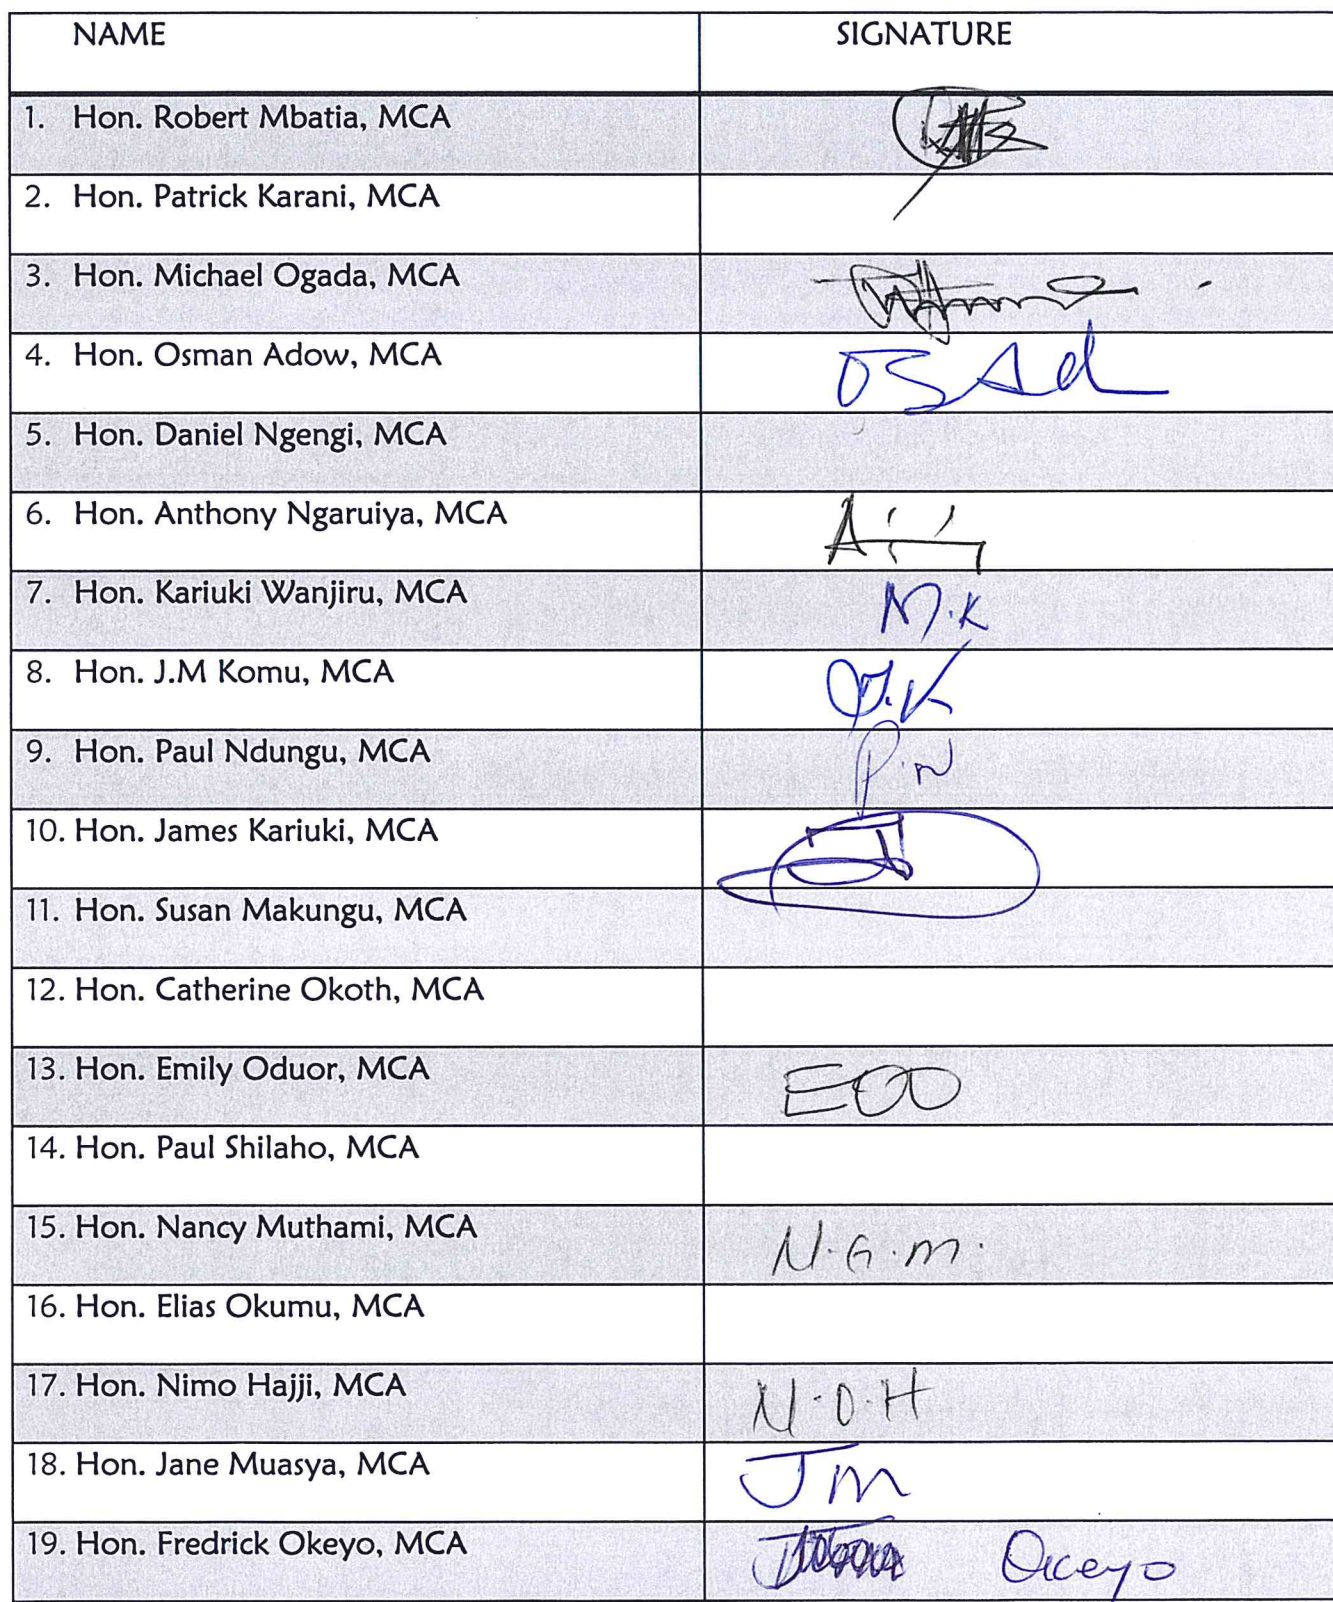 NAME SIGNATURE
1. Hon. Robert Mbatia, MCA
2. Hon. Patrick Karani, MCA
3. Hon. Michael Ogada, MCA
4. Hon. Osman Adow, MCA OS Ad
5. Hon. Daniel Ngengi, MCA
6. Hon. Anthony Ngaruiya, MCA
7. Hon. Kariuki Wanjiru, MCA M.K
8. Hon. J.M Komu, MCA J.K
9. Hon. Paul Ndungu, MCA P.N
10. Hon. James Kariuki, MCA
11. Hon. Susan Makungu, MCA
12. Hon. Catherine Okoth, MCA
13. Hon. Emily Oduor, MCA EOO
14. Hon. Paul Shilaho, MCA
15. Hon. Nancy Muthami, MCA N.G.M.
16. Hon. Elias Okumu, MCA
17. Hon. Nimo Hajji, MCA N.O.H
18. Hon. Jane Muasya, MCA JM
19. Hon. Fredrick Okeyo, MCA Okeyo